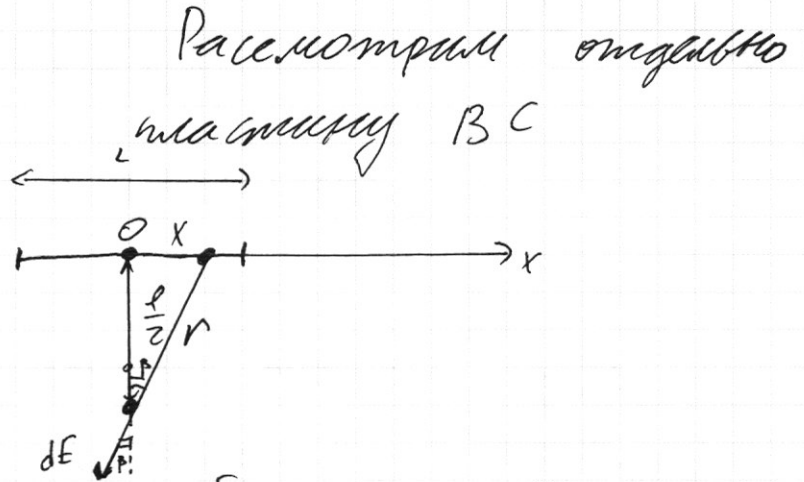 Рассмотрим отдельно
пластину BC
L
O X
x
l/2 r
β
dE β